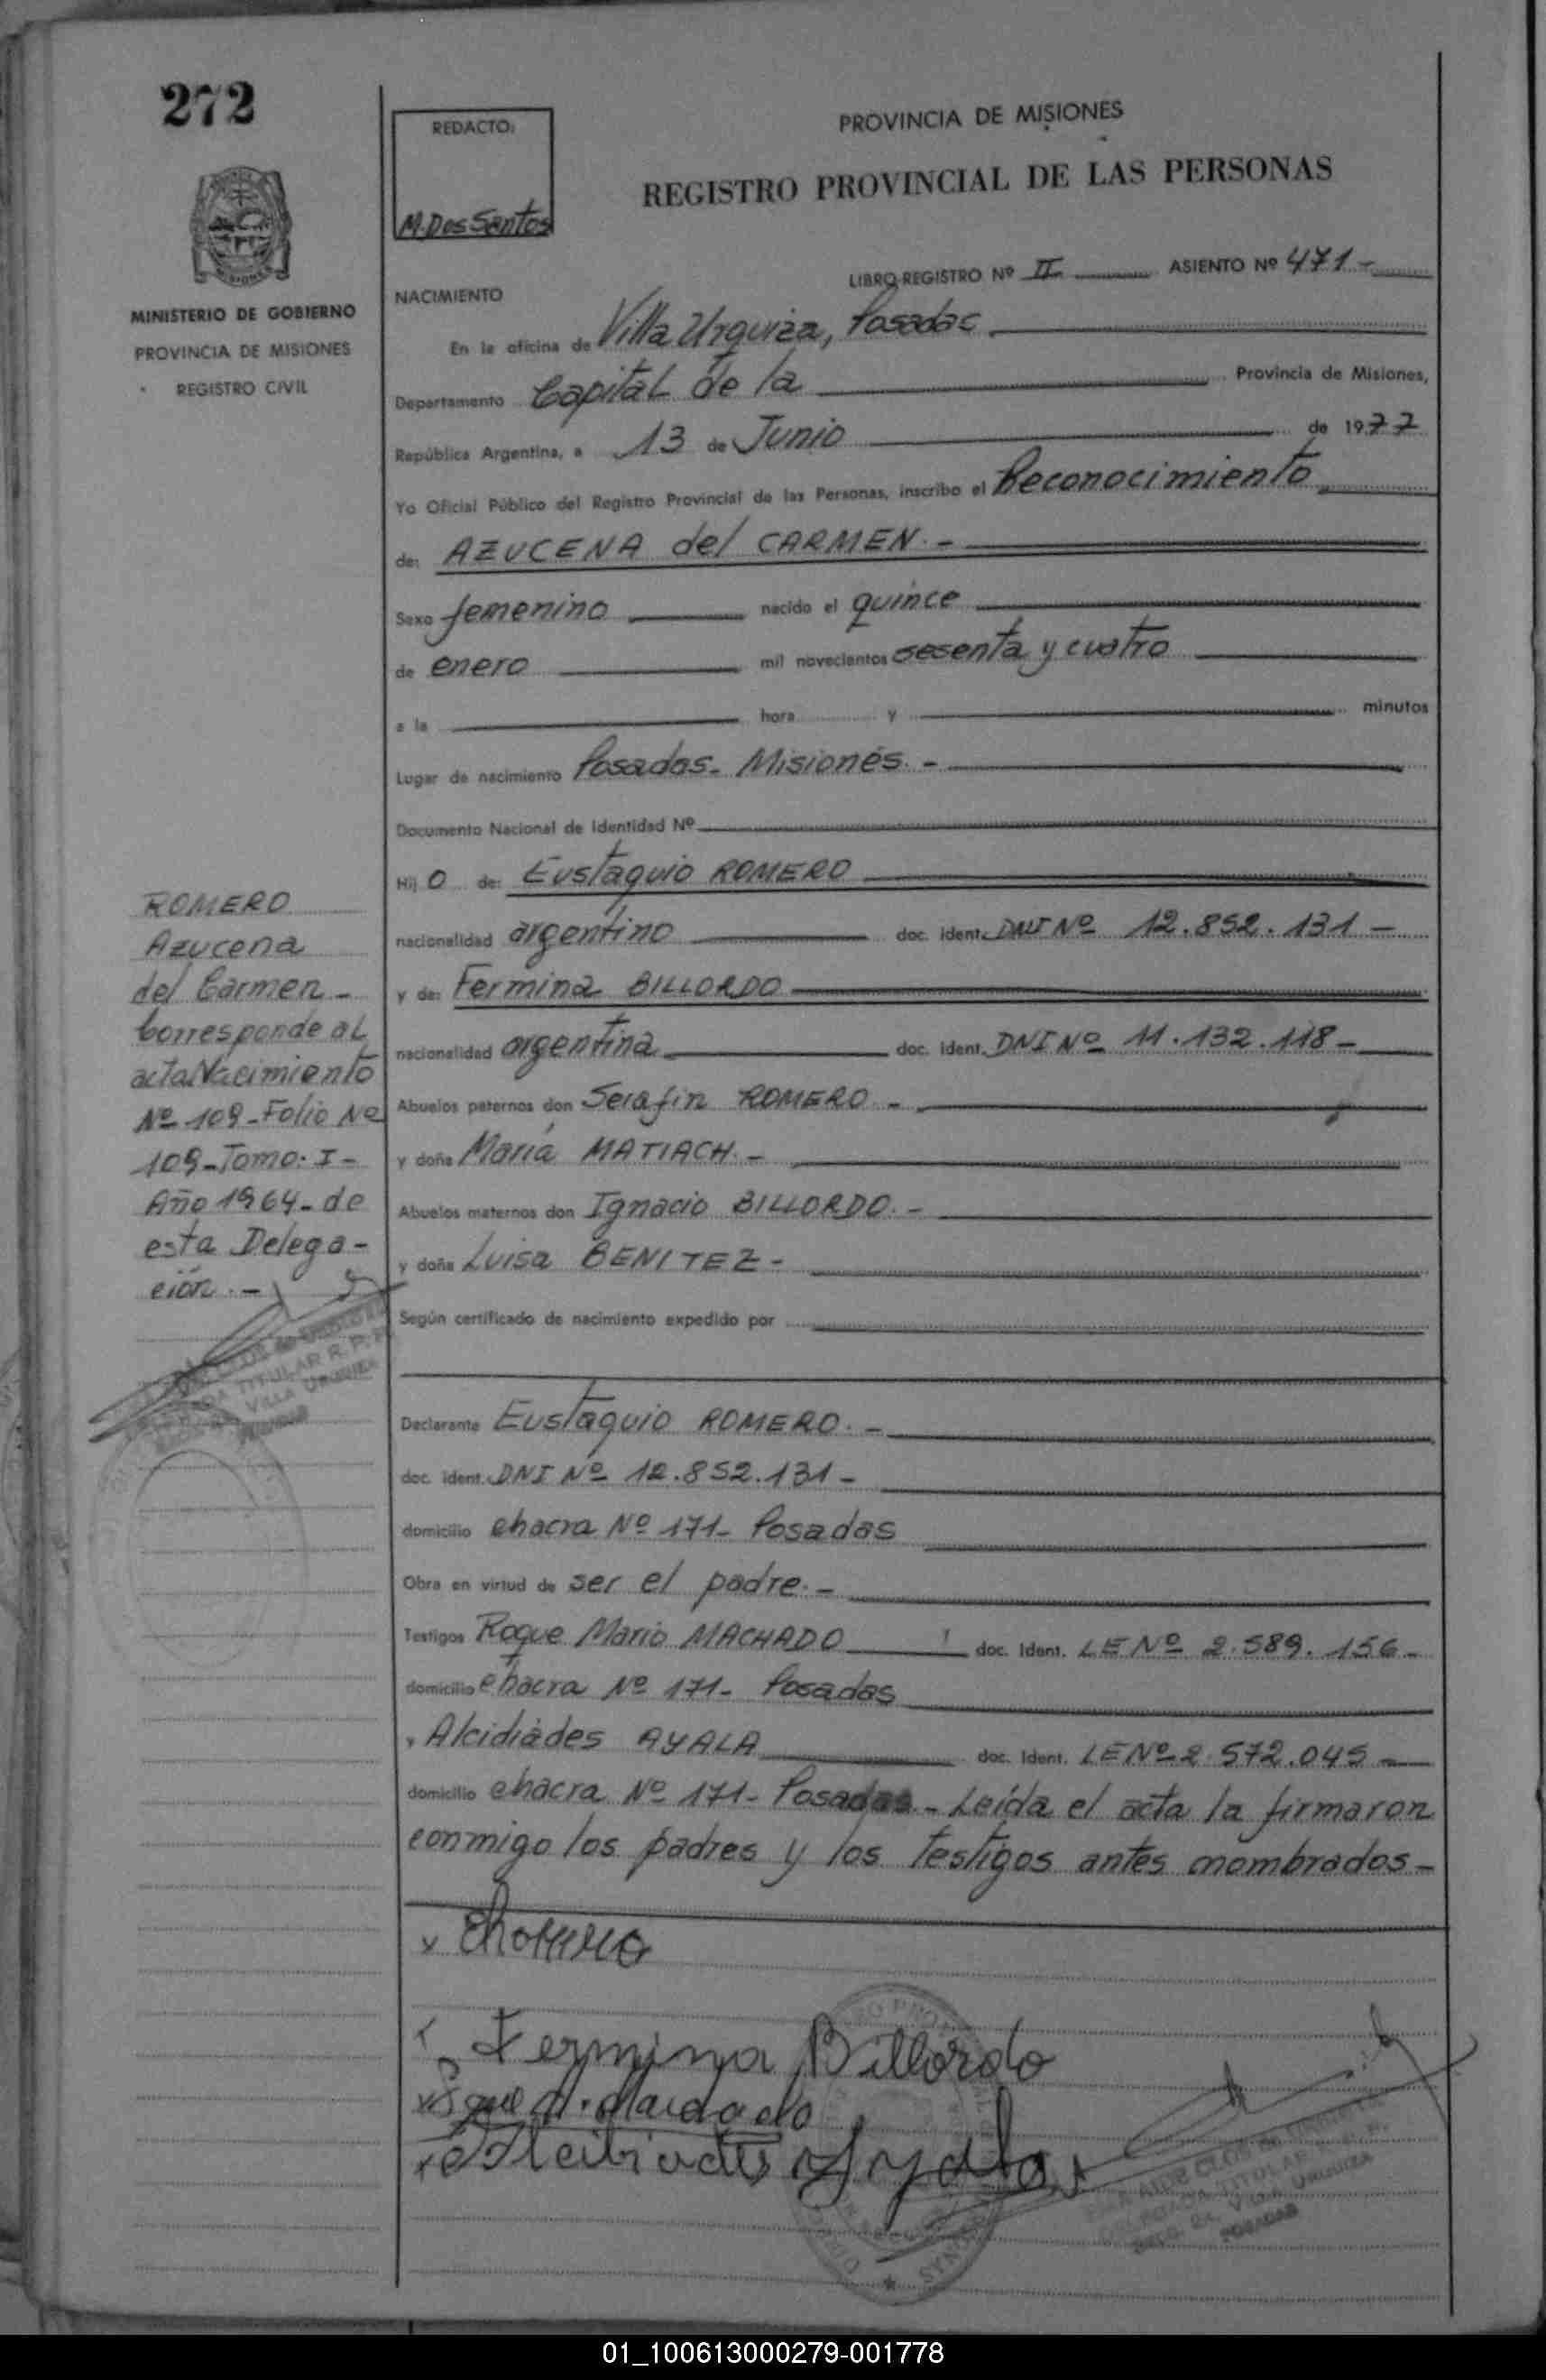 272
REDACTO:
M. Dos Santos
PROVINCIA DE MISIONES
REGISTRO PROVINCIAL DE LAS PERSONAS
MISIONES
MINISTERIO DE GOBIERNO
PROVINCIA DE MISIONES
REGISTRO CIVIL
LIBRO REGISTRO Nº II ASIENTO Nº 471-
NACIMIENTO
En la oficina de Villa Urquiza, Posadas
Departamento Capital de la Provincia de Misiones,
República Argentina, a 13 de Junio de 1977
Yo Oficial Público del Registro Provincial de las Personas, inscribo el Reconocimiento
de: AZUCENA del CARMEN.-
Sexo femenino nacido el quince
de enero mil novecientos sesenta y cuatro
a la hora y minutos
Lugar de nacimiento Posadas- Misiones.-
Documento Nacional de Identidad Nº
Hij o de: Eustaquio ROMERO
nacionalidad argentino doc. ident. DNI Nº 12.852.131-
y de: Fermina BILLORDO
nacionalidad argentina doc. ident. DNI Nº 11.132.118-
Abuelos paternos don Serafin ROMERO-
y doña María MATIACH.-
Abuelos maternos don Ignacio BILLORDO.-
y doña Luisa BENITEZ-
Según certificado de nacimiento expedido por
ROMERO
Azucena
del Carmen-
Corresponde al
acta Nacimiento
Nº 109-Folio Nº
109-Tomo: I-
Año 1964-de
esta Delega-
ción.-
TITULAR R. P. P.
VILLA URQUIZA
POSADAS
Declarante Eustaquio ROMERO.-
doc. ident. DNI Nº 12.852.131-
domicilio chacra Nº 171- Posadas
Obra en virtud de ser el padre.-
Testigos Roque Mario MACHADO doc. Ident. LE Nº 2.589.156-
domicilio chacra Nº 171- Posadas
y Alcidiades AYALA doc. Ident. LE Nº 2.572.045-
domicilio chacra Nº 171- Posadas.- Leída el acta la firmaron
conmigo los padres y los testigos antes nombrados-
x ERomero
x Fermina Billordo
x Roque M. Machado
x Alcibiades Ayala
DELEGADA TITULAR R. P. P.
VILLA URQUIZA
POSADAS
01_100613000279-001778